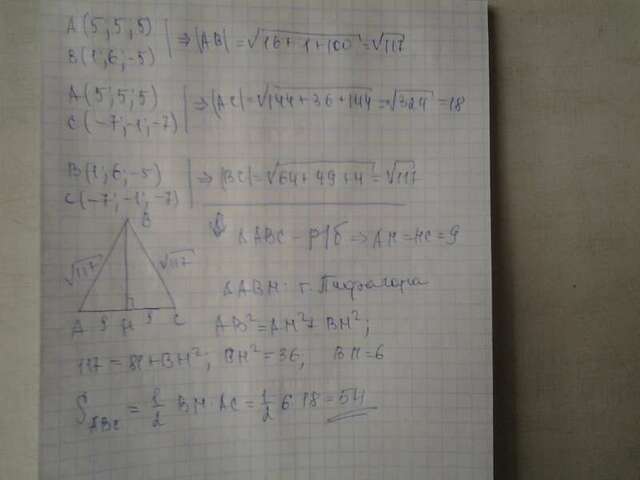 A(5;5;5)
B(1;6;-5) ⇒ |AB| = √16+1+100 = √117
A(5;5;5)
C(-7;-1;-7) ⇒ |AC| = √144+36+144 = √324 = 18
B(1;6;-5)
C(-7;-1;-7) ⇒ |BC| = √64+49+4 = √117
B
√117 √117
A 9 H 9 C
ΔABC - р/б ⇒ AH = HC = 9
ΔABH: т. Пифагора
AB² = AH² + BH²;
117 = 81 + BH²; BH² = 36, BH = 6
S ABC = 1/2 BH · AC = 1/2 6 · 18 = 54